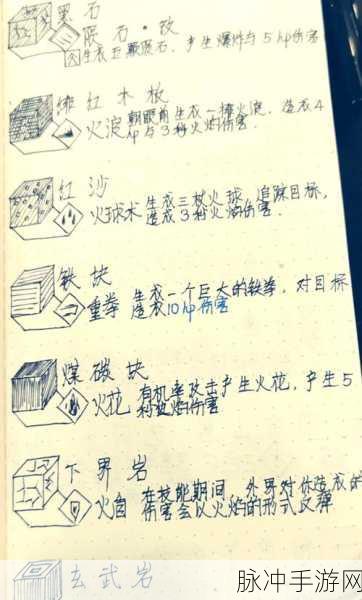 黑石
陨石·改
生成巨颗陨石，产生爆炸与5hp伤害
绯红木板
火浪
朝眼前生成一排火浪，造成4
hp与3秒火焰伤害.
红沙
火球术
生成三枚火球，追踪目标，
造成3秒火焰伤害.
铁块
重拳
生成一个巨大的铁拳，对目标
造成10hp伤害
煤碳块
火花
有机率攻击产生火花，产生5
秒火焰伤害
下界岩
火盾
在技能期间，外界对你造成的
伤害会以火焰的形式反弹
玄武岩
脉冲手游网